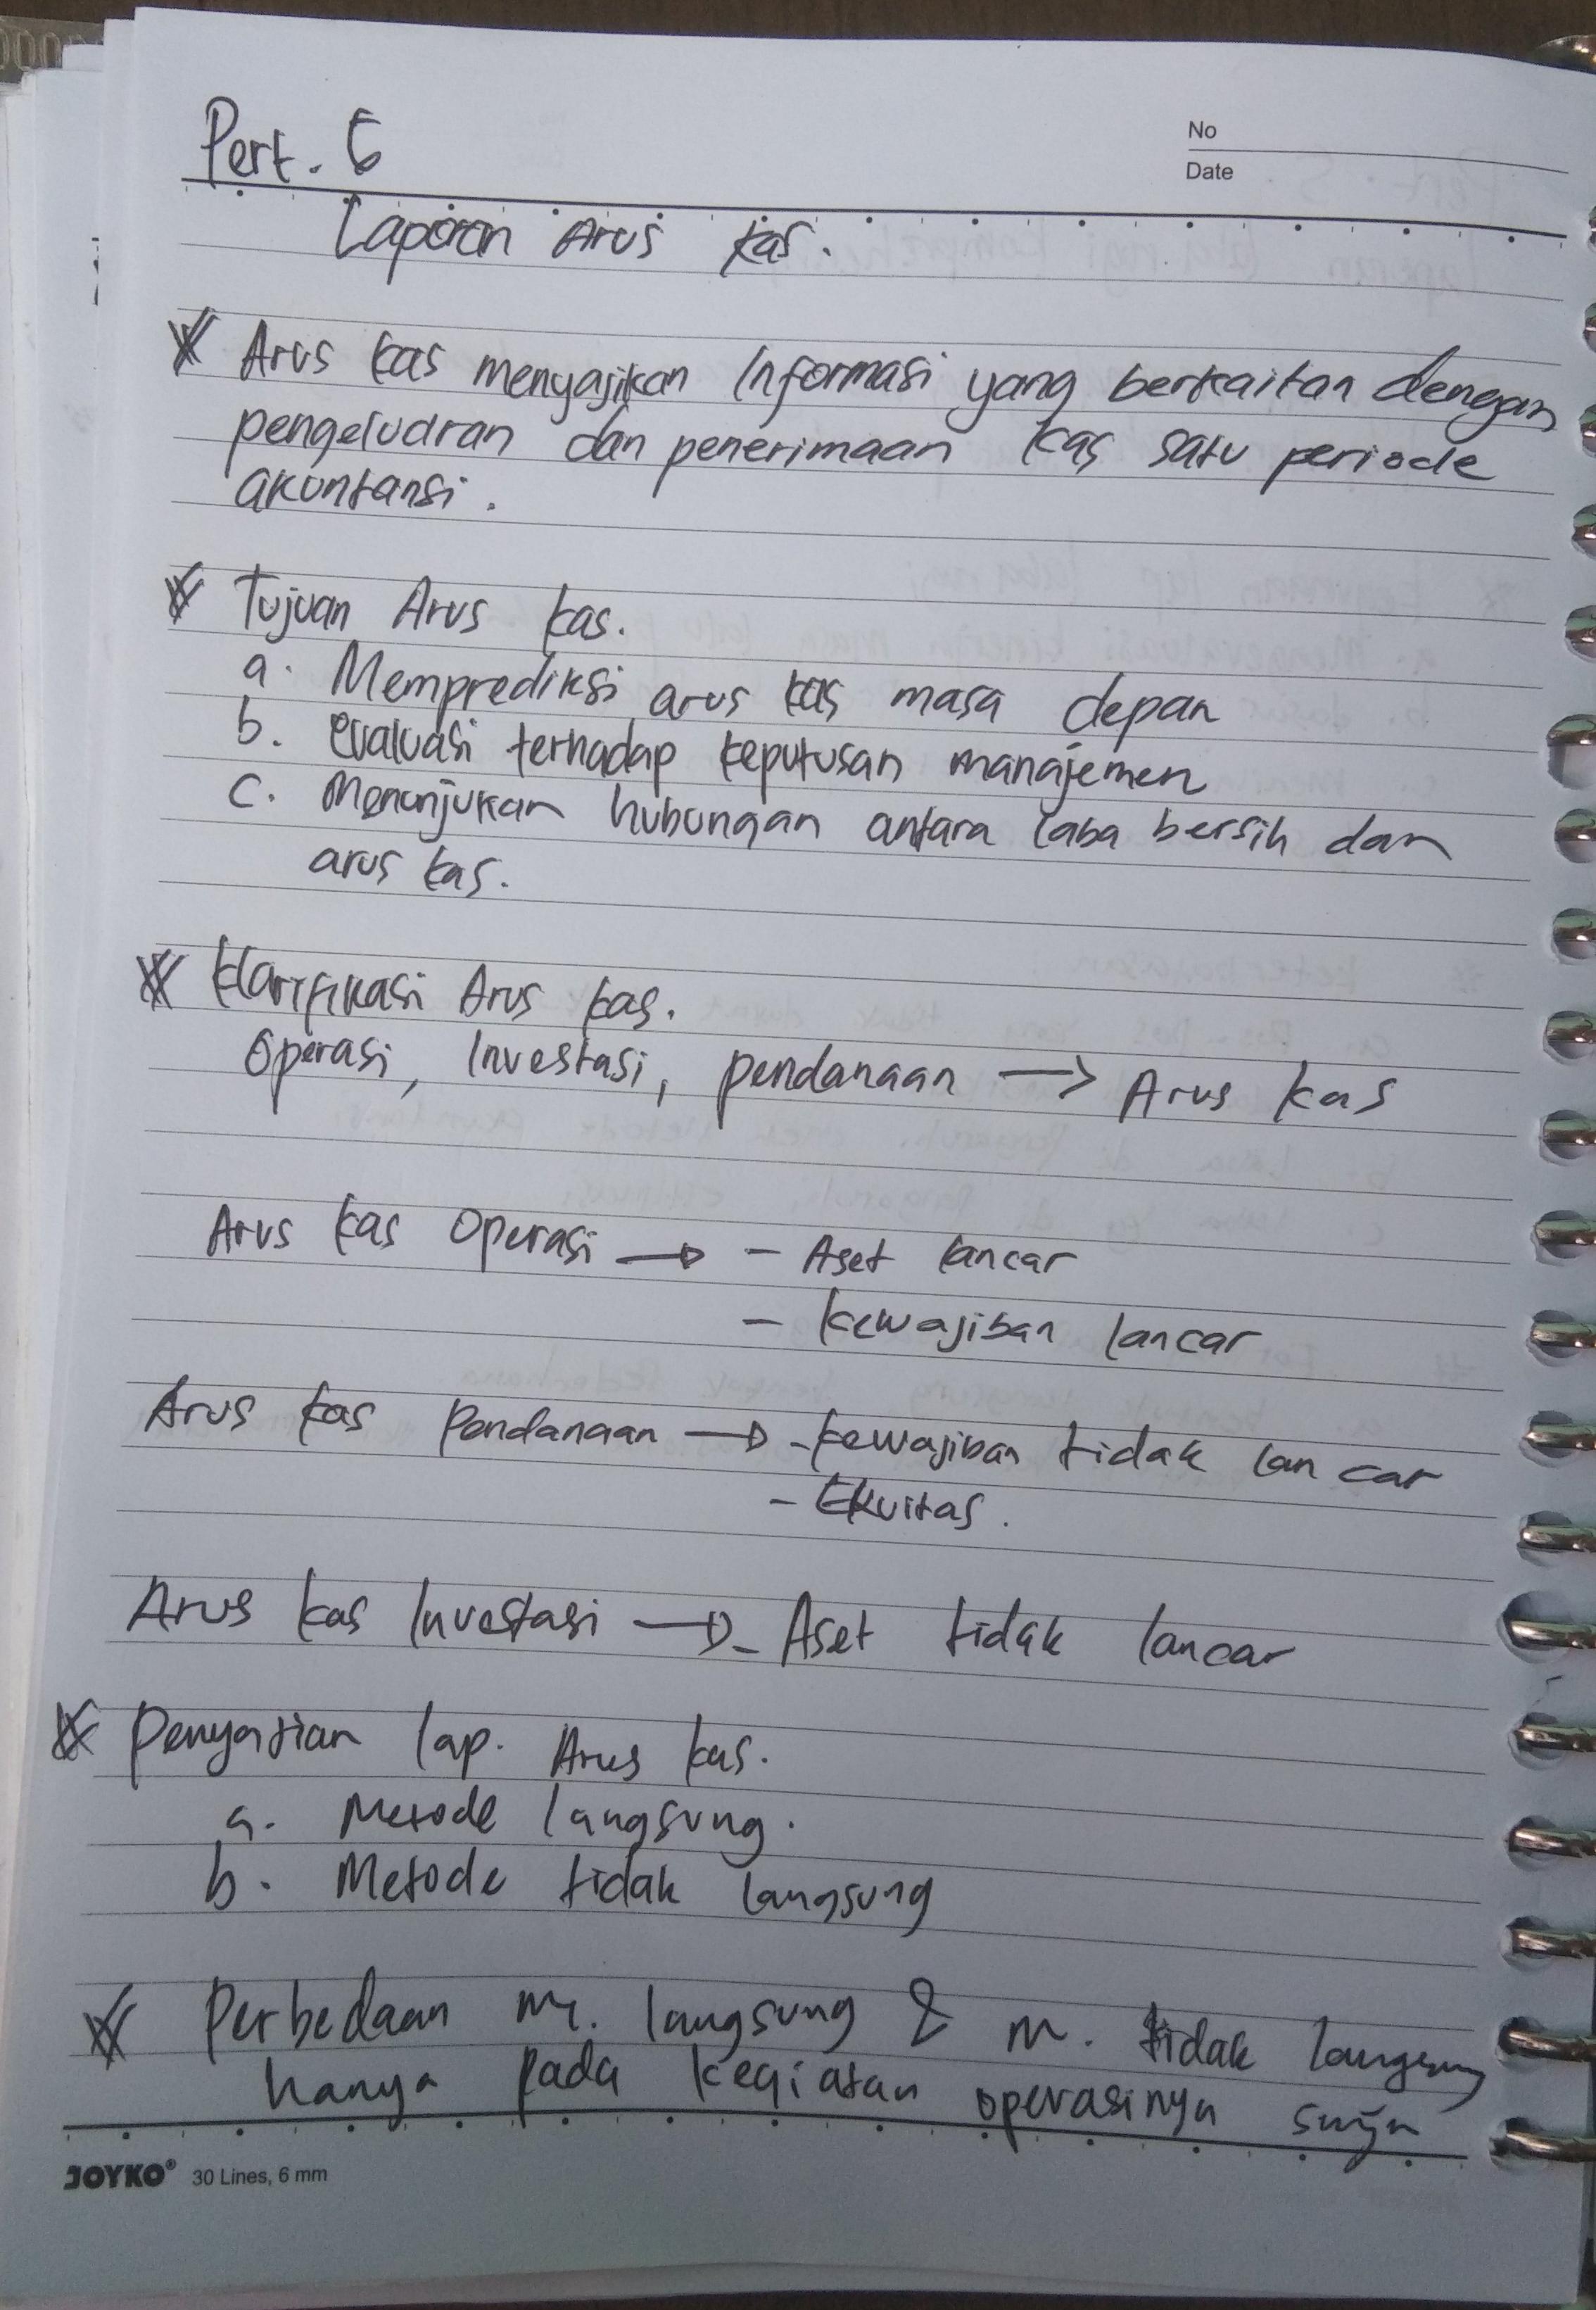 No
Date
Pert. 6
Laporan Arus kas.
Arus kas menyajikan Informasi yang berkaitan dengan
pengeluaran dan penerimaan kas satu periode
akuntansi.
Tujuan Arus kas.
a. Memprediksi arus kas masa depan
b. evaluasi terhadap keputusan manajemen
c. Menunjukan hubungan antara laba bersih dan
arus kas.
Klarifikasi Arus kas.
Operasi, Investasi, pendanaan → Arus kas
Arus kas Operasi → - Aset lancar
- kewajiban lancar
Arus kas Pendanaan → - kewajiban tidak lancar
- Ekuitas.
Arus kas Investasi → - Aset tidak lancar
Penyajian lap. Arus kas.
a. Metode langsung.
b. Metode tidak langsung
Perbedaan m. langsung & m. tidak langsung
hanya pada kegiatan operasinya saja
JOYKO® 30 Lines, 6 mm